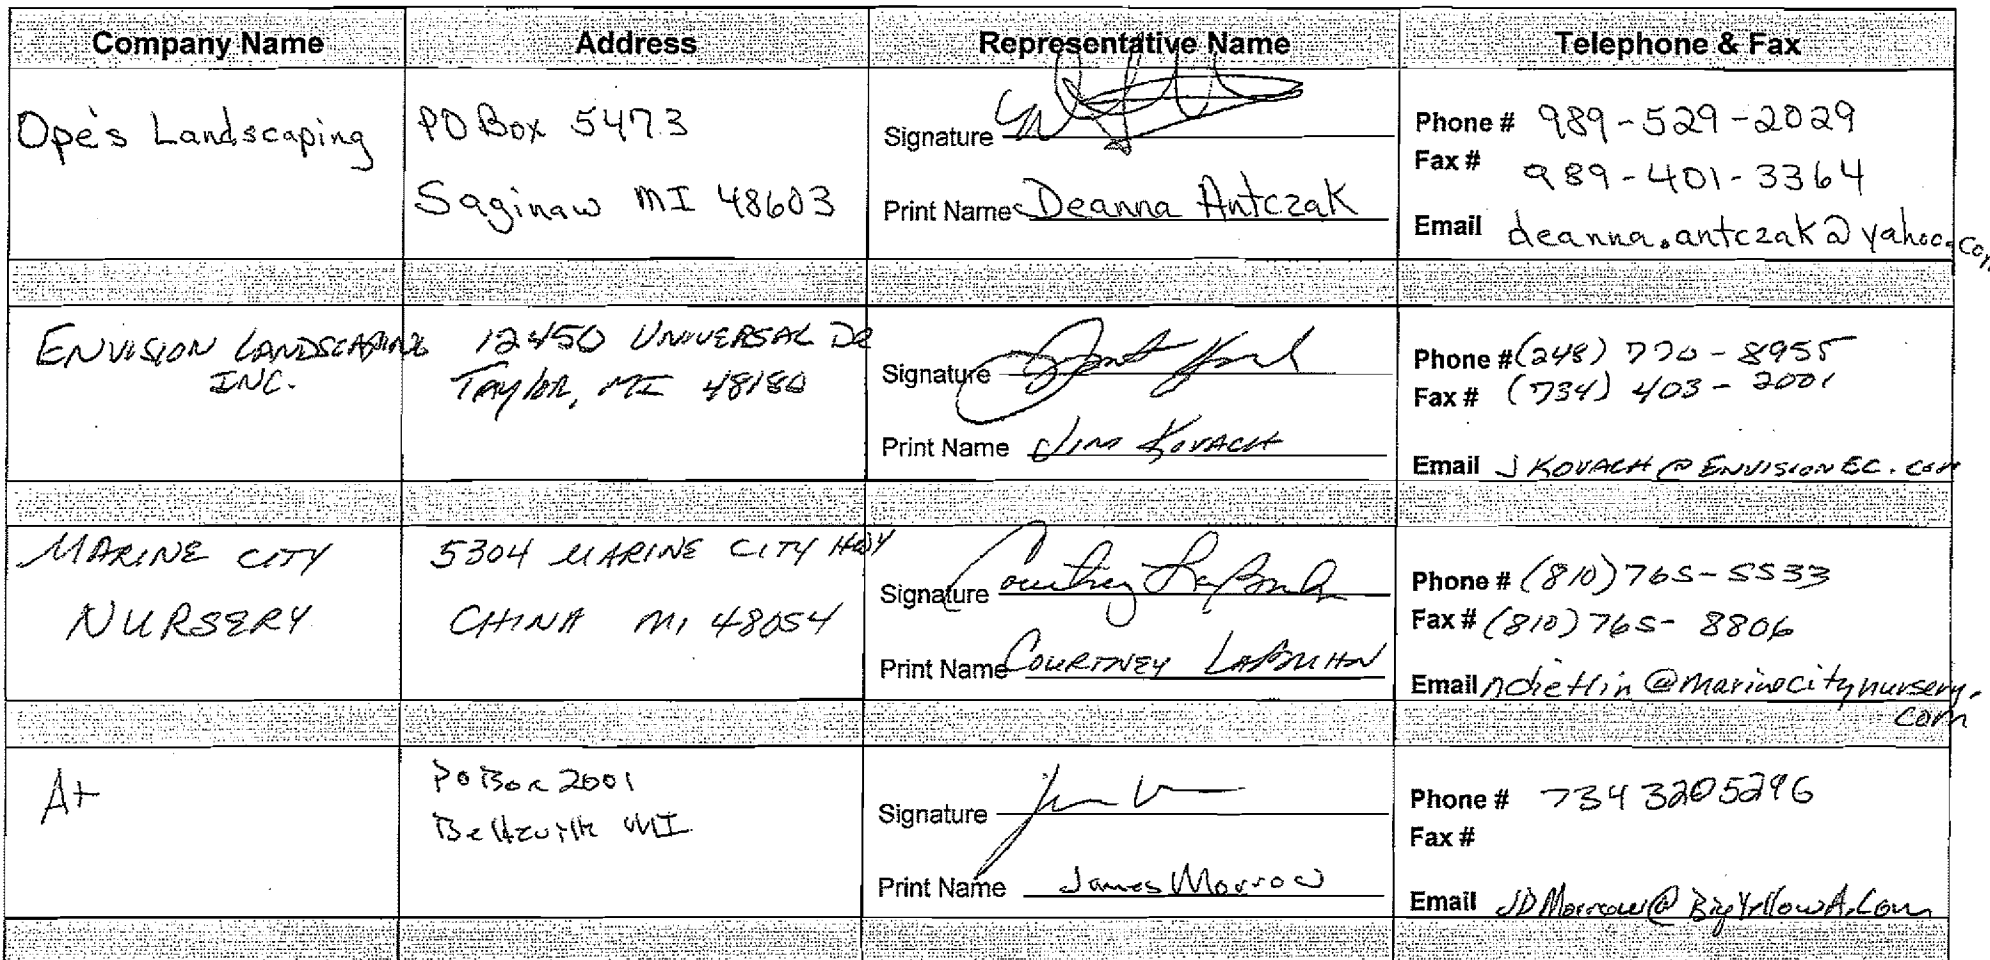 Company Name Address Representative Name Telephone & Fax
Ope's Landscaping
PO Box 5473
Saginaw MI 48603
Signature
Print Name Deanna Antczak
Phone # 989-529-2029
Fax # 989-401-3364
Email deanna.antczak@yahoo.com
ENVISION LANDSCAPING
INC.
12450 UNIVERSAL DR
TAYLOR, MI 48180
Signature
Print Name JIM KOVACH
Phone # (248) 770-8955
Fax # (734) 403-2001
Email JKOVACH@ENVISIONEC.COM
MARINE CITY
NURSERY
5304 MARINE CITY HWY
CHINA MI 48054
Signature Courtney LaBuhn
Print Name COURTNEY LABUHN
Phone # (810) 765-5533
Fax # (810) 765-8806
Email ndietlin@marinecitynursery.
com
A+
PO Box 2001
Belleville MI
Signature
Print Name James Morrow
Phone # 7343205296
Fax #
Email JDMorrow@BigYellowA.Com